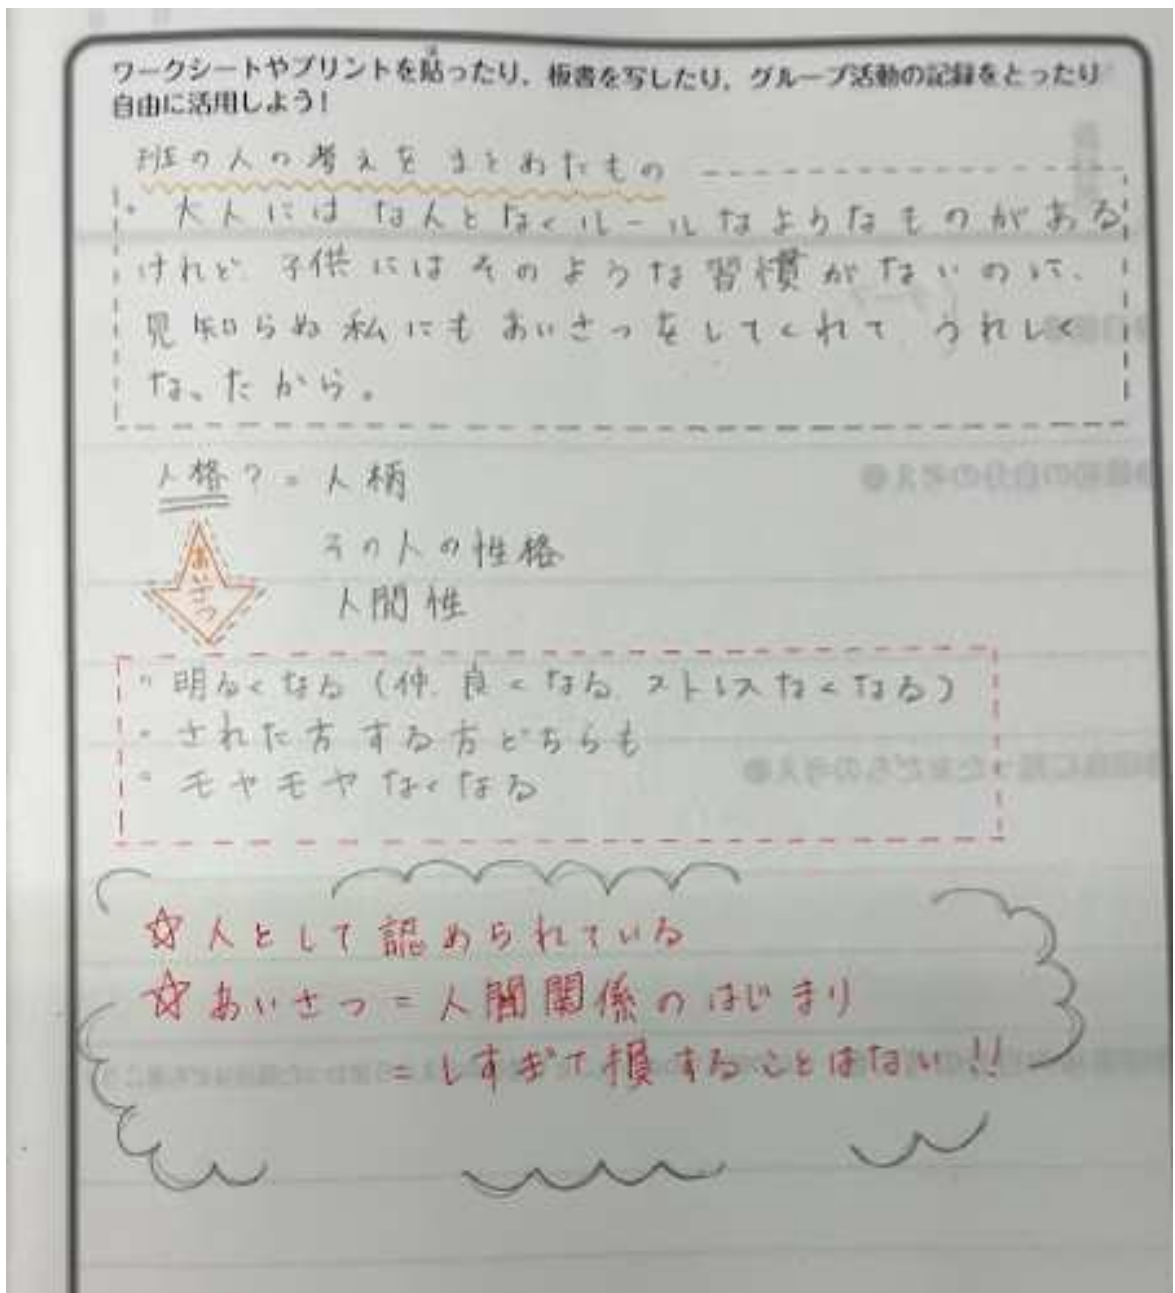 ワークシートやプリントを貼ったり，板書を写したり，グループ活動の記録をとったり
自由に活用しよう！
班の人の考えをまとめたもの
・大人にはなんとなくルールなようなものがある
けれど、子供にはそのような習慣がないのに、
見知らぬ私にもあいさつをしてくれてうれしく
なったから。
人格？＝人柄
その人の性格
人間性
あいさつ
・明るくなる（仲良くなる、ストレスなくなる）
・された方する方どちらも
・モヤモヤなくなる
☆人として認められている
☆あいさつ＝人間関係のはじまり
＝しすぎて損することはない!!